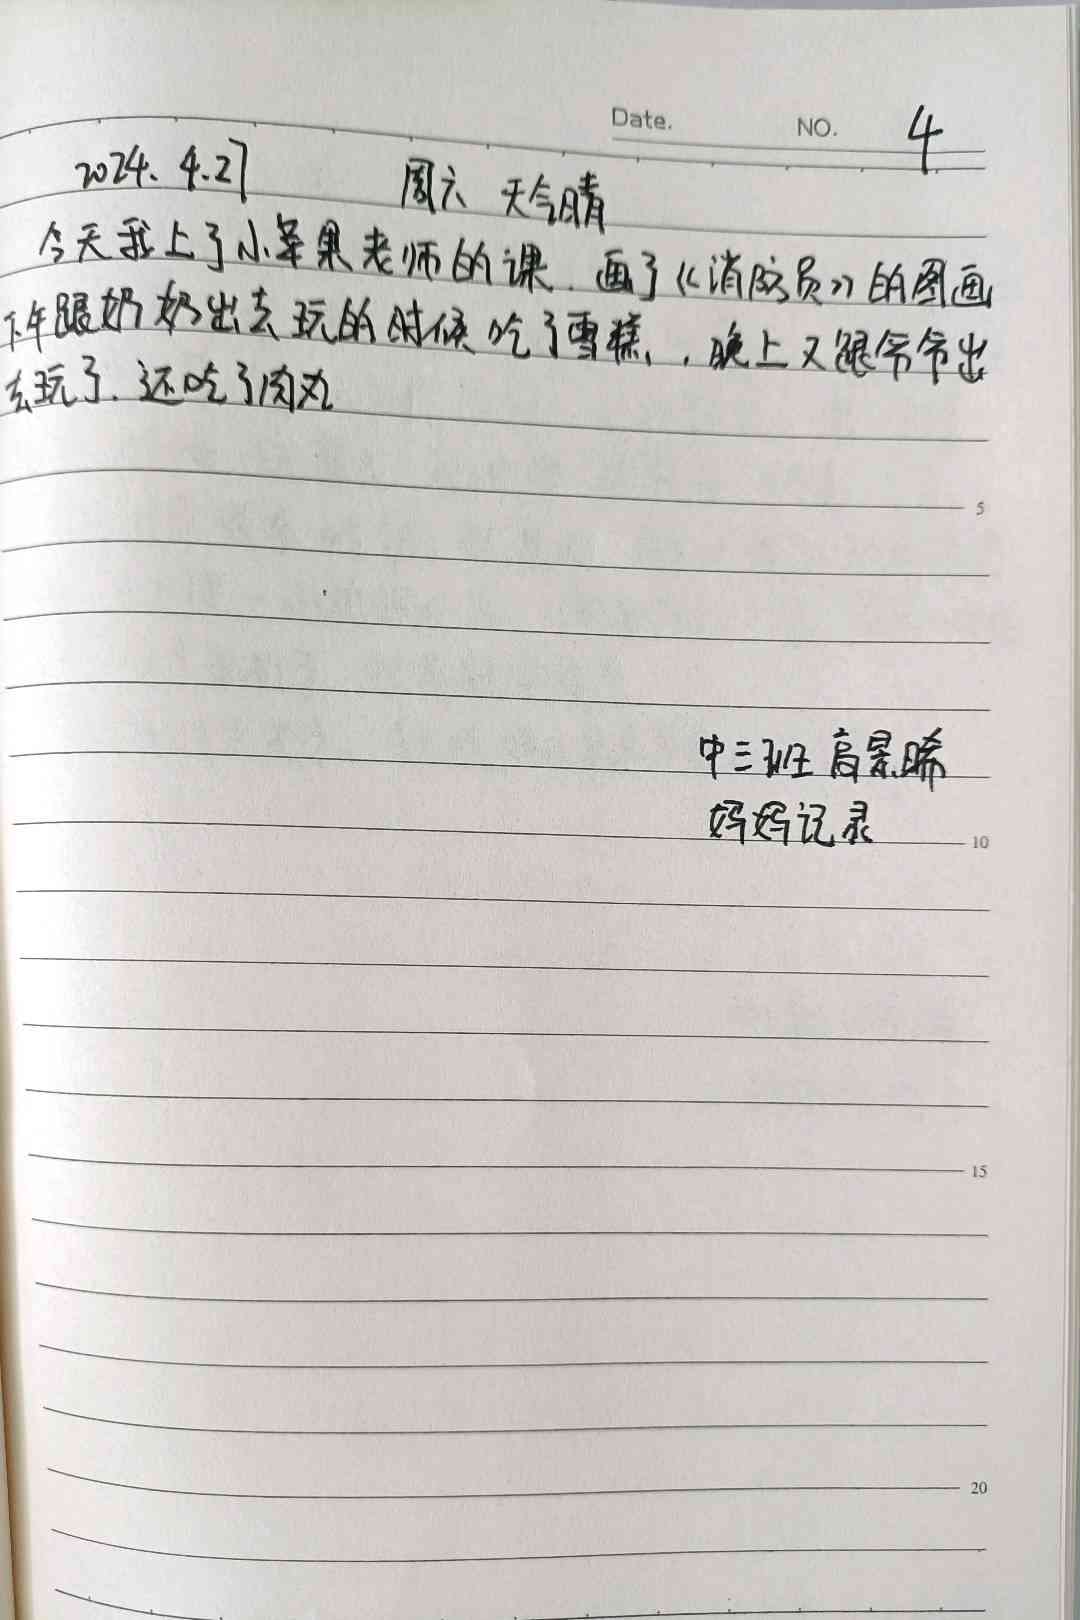 Date. NO. 4
2024. 4.27 周六 天气晴
今天我上了小苹果老师的课. 画了《消防员》的图画
下午跟奶奶出去玩的时候吃了雪糕, , 晚上又跟爷爷出
去玩了. 还吃了肉丸
5
中三班 高景晞
妈妈记录
10
15
20